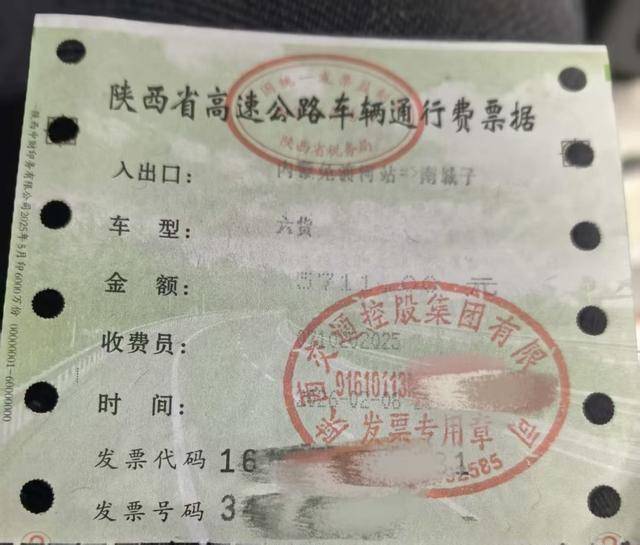 陕西省高速公路车辆通行费票据
全国统一发票监制
陕西省税务局
入出口: 内蒙免渡河站=>南城子
车 型: 六货
金 额: 元
收费员:
时 间: 2026-02-08
发票代码 16 31
发票号码 3
陕西交通控股集团有限 公司
91610113
发票专用章
2585
陕西中财印务有限公司2025年5月印6000万份 00000001-60000000